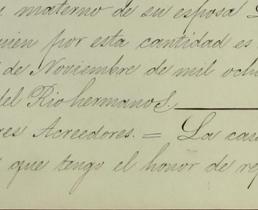 materno de su esposa
uien por esta cantidad es
de Noviembre de mil ochu
del Rio hermanos
res Acreedores. = La casa
que tengo el honor de rep